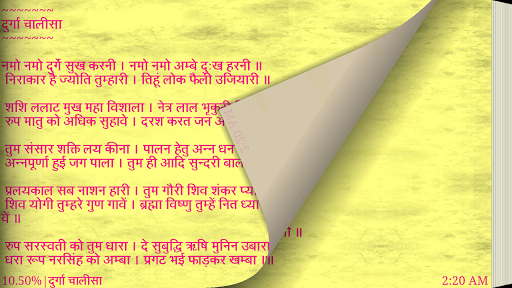 ~~~~~~~
दुर्गा चालीसा
~~~~~~~
नमो नमो दुर्गे सुख करनी । नमो नमो अम्बे दुःख हरनी ॥
निराकार है ज्योति तुम्हारी । तिहूं लोक फैली उजियारी ॥
शशि ललाट मुख महा विशाला । नेत्र लाल भृकुटी
रुप मातु को अधिक सुहावे । दरश करत जन
तुम संसार शक्ति लय कीना । पालन हेतु अन्न धन
अन्नपूर्णा हुई जग पाला । तुम ही आदि सुन्दरी
प्रलयकाल सब नाशन हारी । तुम गौरी शिव शंकर
शिव योगी तुम्हरे गुण गावें । ब्रह्मा विष्णु तुम्हें नित
वें ॥
॥
रुप सरस्वती को तुम धारा । दे सुबुद्धि ऋषि मुनिन उबारा
धरा रूप नरसिंह को अम्बा । प्रगट भई फाड़कर खम्बा ॥
10.50%|दुर्गा चालीसा
2:20 AM